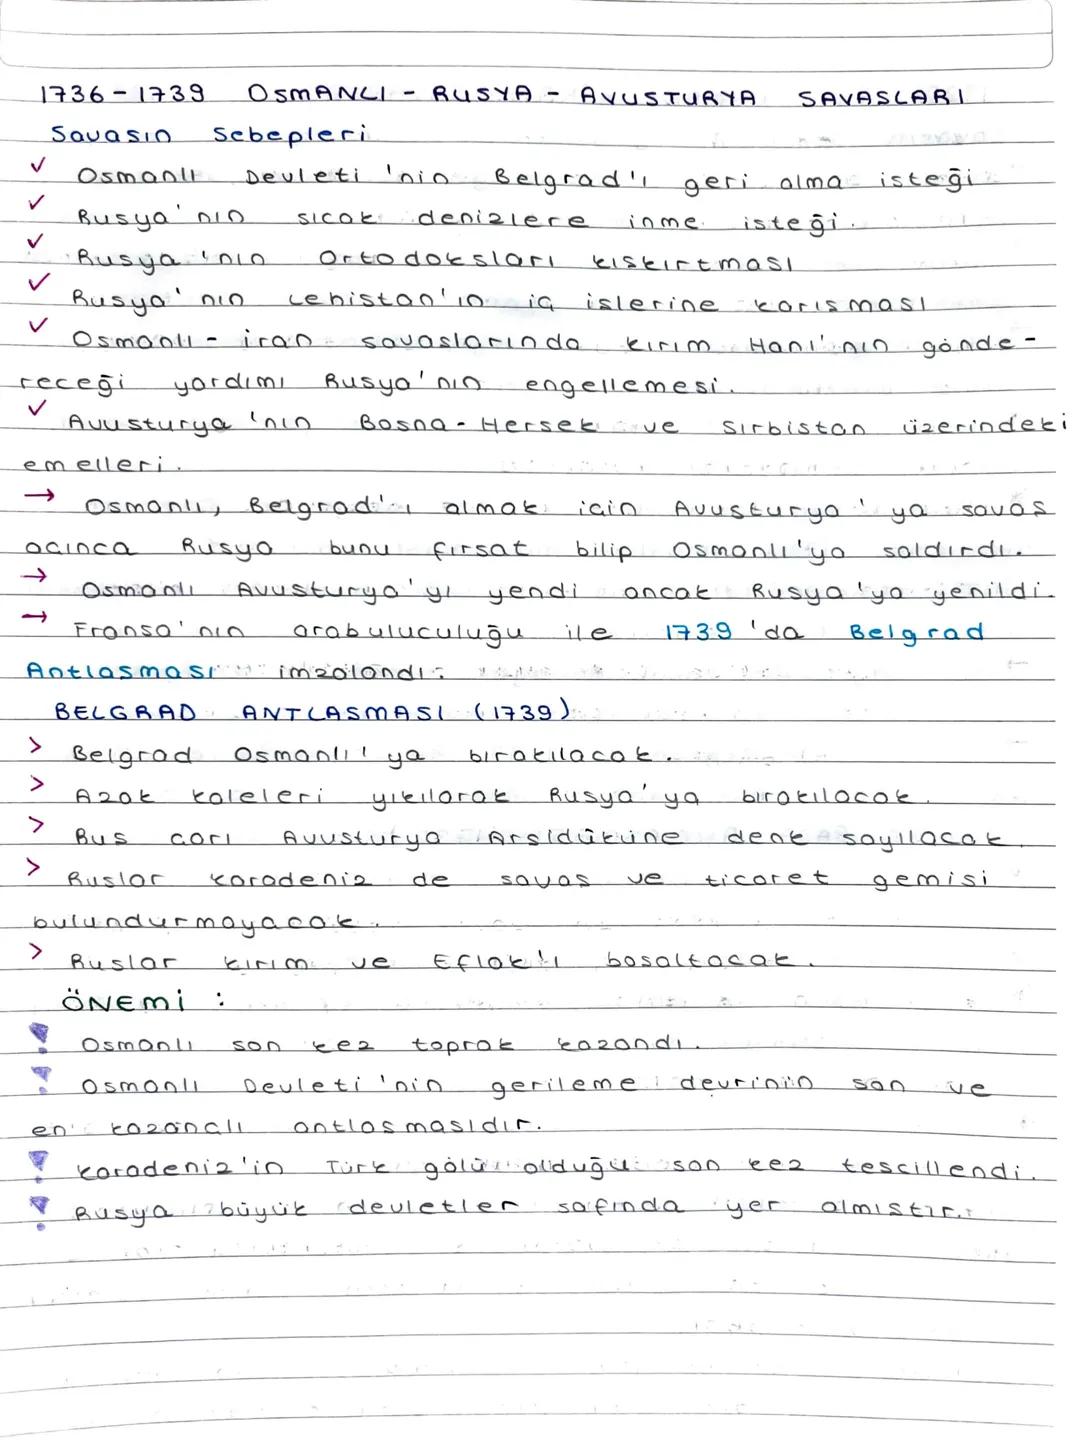 1736-1739 OSMANLI - RUSYA - AVUSTURYA SAVASLARI
Savasın Sebepleri
✓ Osmanlı Devleti 'nin Belgrad'ı geri alma isteği
✓ Rusya'nın sıcak denizlere inme isteği.
✓ Rusya 'nın Ortodoksları kıskırtması
✓ Rusya'nın Lehistan'ın iç islerine karısması
✓ Osmanlı - iran savaslarında Kırım Hanı'nın gönde-
receği yardımı Rusya'nın engellemesi.
✓ Avusturya 'nın Bosna-Hersek ve Sırbistan üzerindeki
emelleri.
→ Osmanlı, Belgrad'ı almak icin Avusturya'ya savas
acınca Rusya bunu fırsat bilip Osmanlı'ya saldırdı.
→ Osmanlı Avusturya'yı yendi ancak Rusya'ya yenildi.
→ Fransa'nın arabuluculuğu ile 1739 'da Belgrad
Antlasması imzalandı.
BELGRAD ANTLASMASI (1739)
> Belgrad Osmanlı'ya bırakılacak.
> Azak kaleleri yıkılarak Rusya'ya bırakılacak.
> Rus carı Avusturya Arsidüküne denk sayılacak.
> Ruslar Karadeniz de savas ve ticaret gemisi
bulundurmayacak.
> Ruslar Kırım ve Eflak'ı bosaltacak.
ÖNEMİ :
! Osmanlı son kez toprak kazandı.
! Osmanlı Devleti 'nin gerileme devrinin son ve
en kazanclı antlasmasıdır.
! Karadeniz'in Türk gölü olduğu son kez tescillendi.
! Rusya büyük devletler safında yer almıstır.